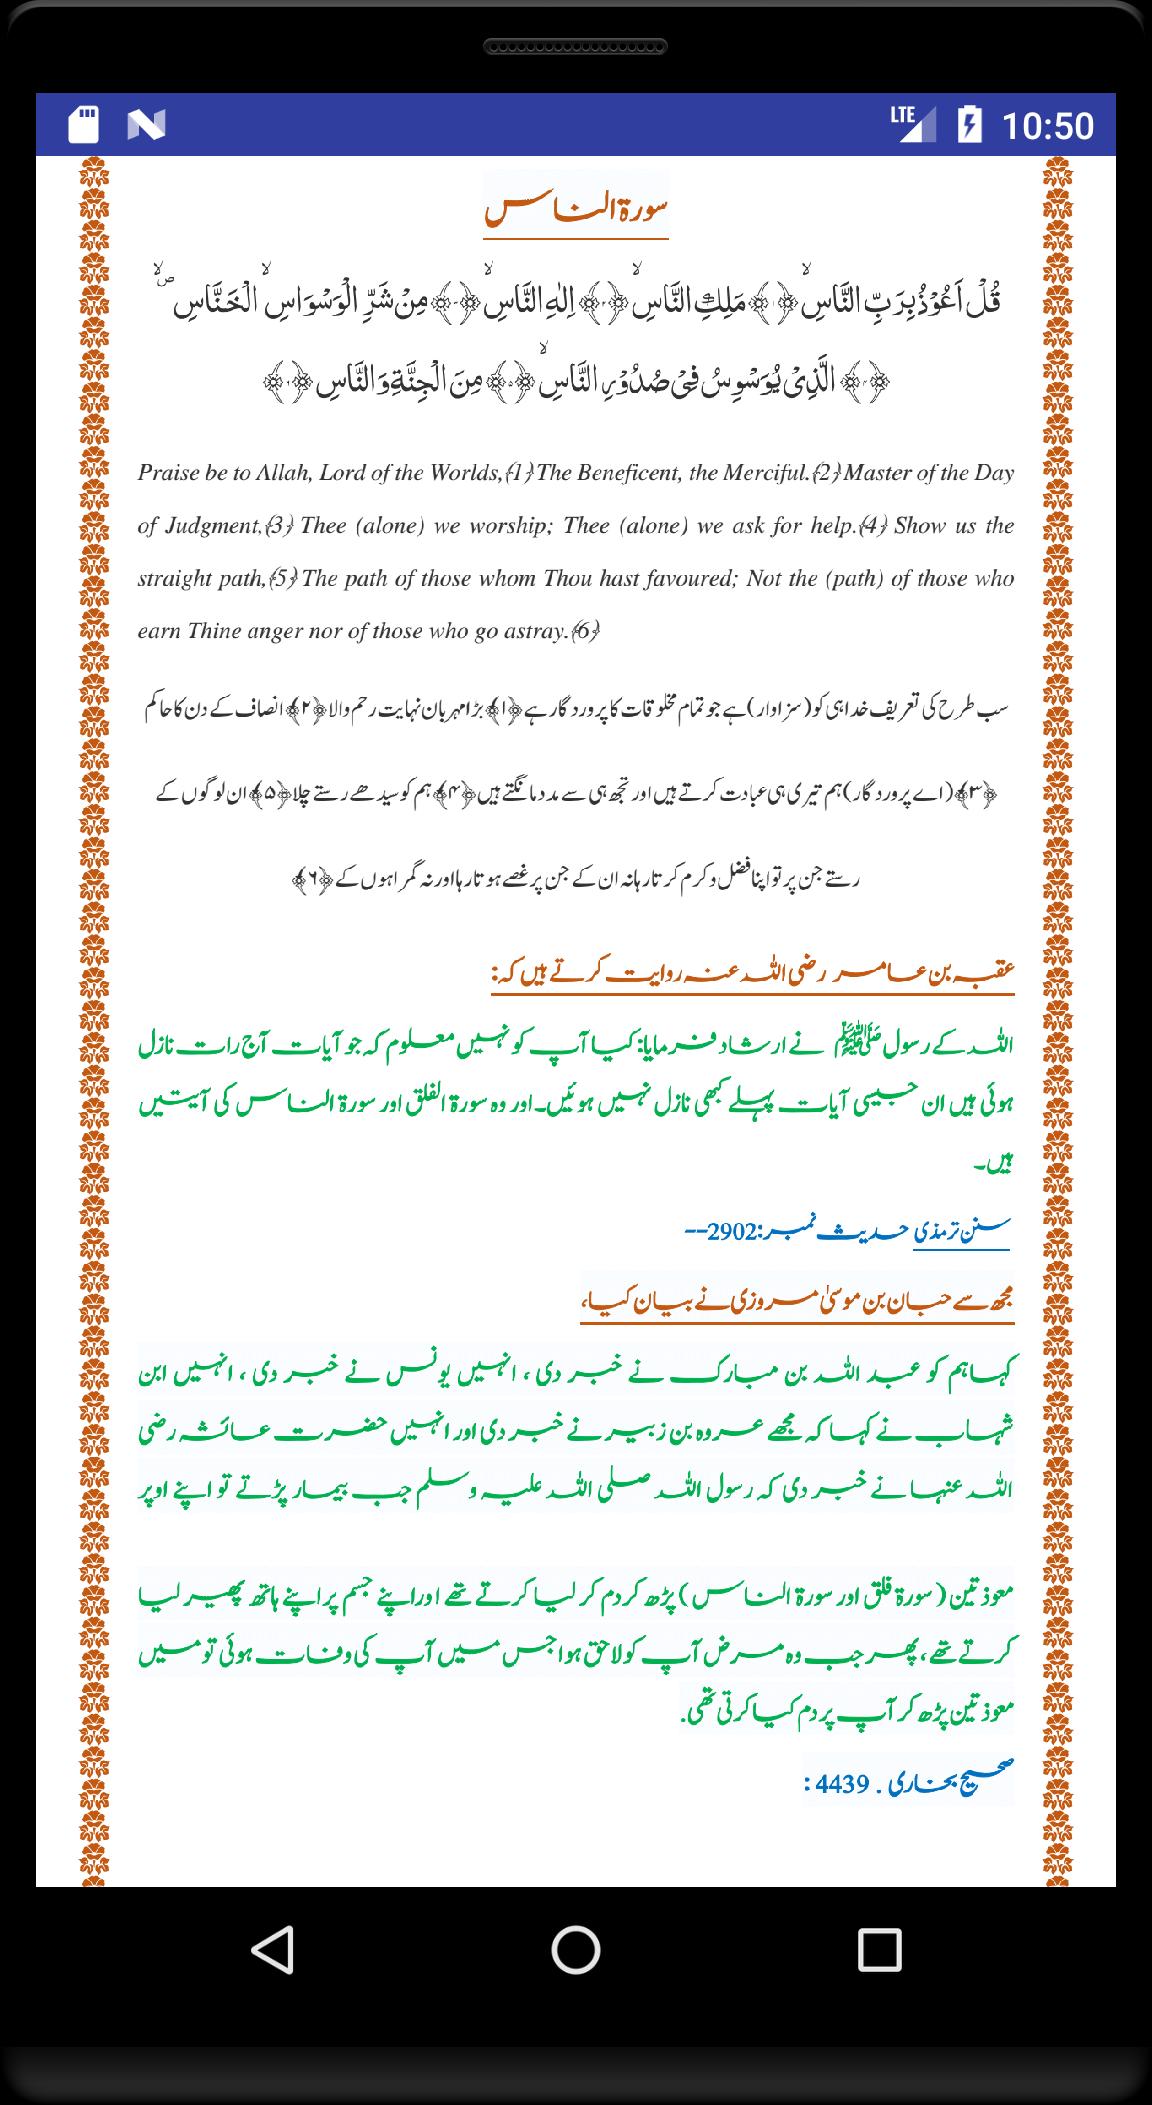 LTE 10:50
سورۃ الناس
قُلْ اَعُوْذُ بِرَبِّ النَّاسِۙ﴿۱﴾ مَلِكِ النَّاسِۙ﴿۲﴾ اِلٰهِ النَّاسِۙ﴿۳﴾ مِنْ شَرِّ الْوَسْوَاسِ ۙ الْخَنَّاسِ۪ۙ
﴿۴﴾ الَّذِیْ یُوَسْوِسُ فِیْ صُدُوْرِ النَّاسِۙ﴿۵﴾ مِنَ الْجِنَّةِ وَ النَّاسِ﴿۶﴾
Praise be to Allah, Lord of the Worlds,﴾1﴿ The Beneficent, the Merciful.﴾2﴿ Master of the Day
of Judgment,﴾3﴿ Thee (alone) we worship; Thee (alone) we ask for help.﴾4﴿ Show us the
straight path,﴾5﴿ The path of those whom Thou hast favoured; Not the (path) of those who
earn Thine anger nor of those who go astray.﴾6﴿
سب طرح کی تعریف خدا ہی کو (سزاوار) ہے جو تمام مخلوقات کا پروردگار ہے ﴿۱﴾ بڑا مہربان نہایت رحم والا ﴿۲﴾ انصاف کے دن کا حاکم
﴿۳﴾ (اے پروردگار) ہم تیری ہی عبادت کرتے ہیں اور تجھ ہی سے مدد مانگتے ہیں ﴿۴﴾ ہم کو سیدھے رستے چلا ﴿۵﴾ ان لوگوں کے
رستے جن پر تو اپنا فضل و کرم کرتا رہا نہ ان کے جن پر غصے ہوتا رہا اور نہ گمراہوں کے ﴿۶﴾
عقبہ بن عامر رضی اللہ عنہ روایت کرتے ہیں کہ:
اللہ کے رسول ﷺ نے ارشاد فرمایا: کیا آپ کو نہیں معلوم کہ جو آیات آج رات نازل
ہوئی ہیں ان جیسی آیات پہلے کبھی نازل نہیں ہوئیں۔ اور وہ سورۃ الفلق اور سورۃ الناس کی آیتیں
ہیں۔
سنن ترمذی حدیث نمبر:2902--
مجھ سے حبان بن موسیٰ مروزی نے بیان کیا،
کہا ہم کو عبد اللہ بن مبارک نے خبر دی ، انہیں یونس نے خبر دی ، انہیں ابن
شہاب نے کہا کہ مجھے عروہ بن زبیر نے خبر دی اور انہیں حضرت عائشہ رضی
اللہ عنہا نے خبر دی کہ رسول اللہ صلی اللہ علیہ وسلم جب بیمار پڑتے تو اپنے اوپر
معوذتین ( سورۃ فلق اور سورۃ الناس ) پڑھ کر دم کر لیا کرتے تھے اور اپنے جسم پر اپنے ہاتھ پھیر لیا
کرتے تھے ، پھر جب وہ مرض آپ کو لاحق ہوا جس میں آپ کی وفات ہوئی تو میں
معوذتین پڑھ کر آپ پر دم کیا کرتی تھی.
صحیح بخاری . 4439 :